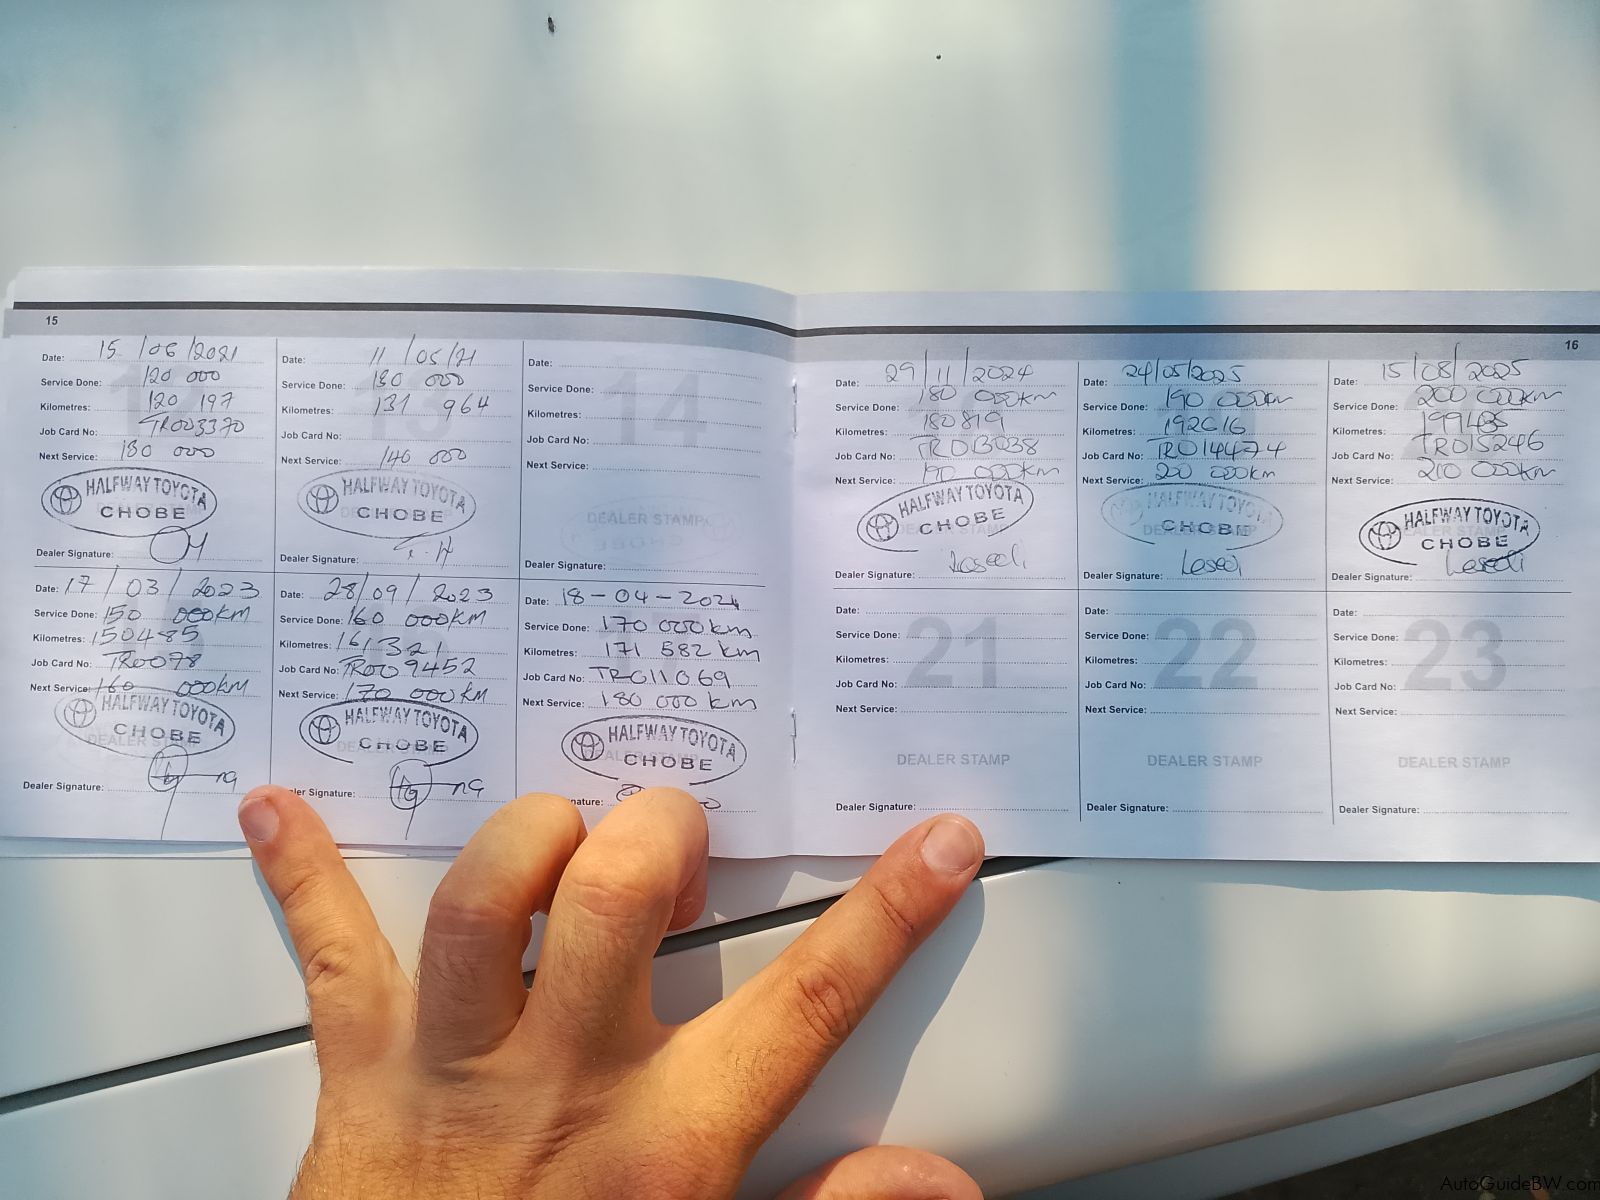 15
Date: 15/06/2021
Service Done: 120 000
Kilometres: 120 197
Job Card No: TR003370
Next Service: 130 000
HALFWAY TOYOTA
CHOBE
Dealer Signature:
Date: 11/05/21
Service Done: 130 000
Kilometres: 131 964
Job Card No:
Next Service: 140 000
HALFWAY TOYOTA
CHOBE
Dealer Signature:
14
Date:
Service Done:
Kilometres:
Job Card No:
Next Service:
DEALER STAMP
Dealer Signature:
Date: 17/03/2023
Service Done: 150 000KM
Kilometres: 150485
Job Card No: TR0078
Next Service: 160 000KM
HALFWAY TOYOTA
CHOBE
Dealer Signature:
Date: 28/09/2023
Service Done: 160 000KM
Kilometres: 161321
Job Card No: TR009452
Next Service: 170 000KM
HALFWAY TOYOTA
CHOBE
Dealer Signature:
Date: 18-04-2024
Service Done: 170 000km
Kilometres: 171 582 km
Job Card No: TR011069
Next Service: 180 000 km
HALFWAY TOYOTA
CHOBE
16
Date: 29/11/2024
Service Done: 180 000km
Kilometres: 180819
Job Card No: TR013038
Next Service: 190 000km
HALFWAY TOYOTA
CHOBE
Dealer Signature: Lesedi
Date: 24/05/2025
Service Done: 190 000km
Kilometres: 192616
Job Card No: TR014474
Next Service: 200 000km
HALFWAY TOYOTA
CHOBE
Dealer Signature: Lesedi
Date: 15/08/2025
Service Done: 200 000km
Kilometres: 199485
Job Card No: TR015246
Next Service: 210 000km
HALFWAY TOYOTA
CHOBE
Dealer Signature: Lesedi
21
Date:
Service Done:
Kilometres:
Job Card No:
Next Service:
DEALER STAMP
Dealer Signature:
22
Date:
Service Done:
Kilometres:
Job Card No:
Next Service:
DEALER STAMP
Dealer Signature:
23
Date:
Service Done:
Kilometres:
Job Card No:
Next Service:
DEALER STAMP
Dealer Signature:
AutoGuideBW.com